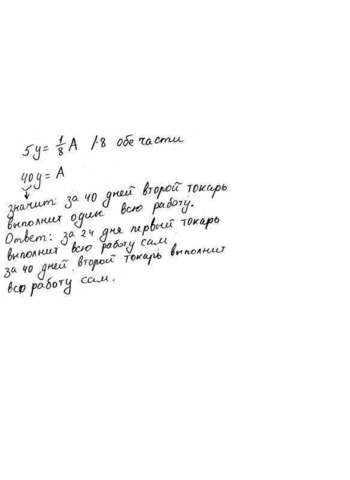 5y = 1/8 A /·8 обе части
40y = A
значит: за 40 дней второй токарь
выполнит один всю работу.
Ответ: за 24 дня первый токарь
выполнит всю работу сам
за 40 дней второй токарь выполнит
всю работу сам.